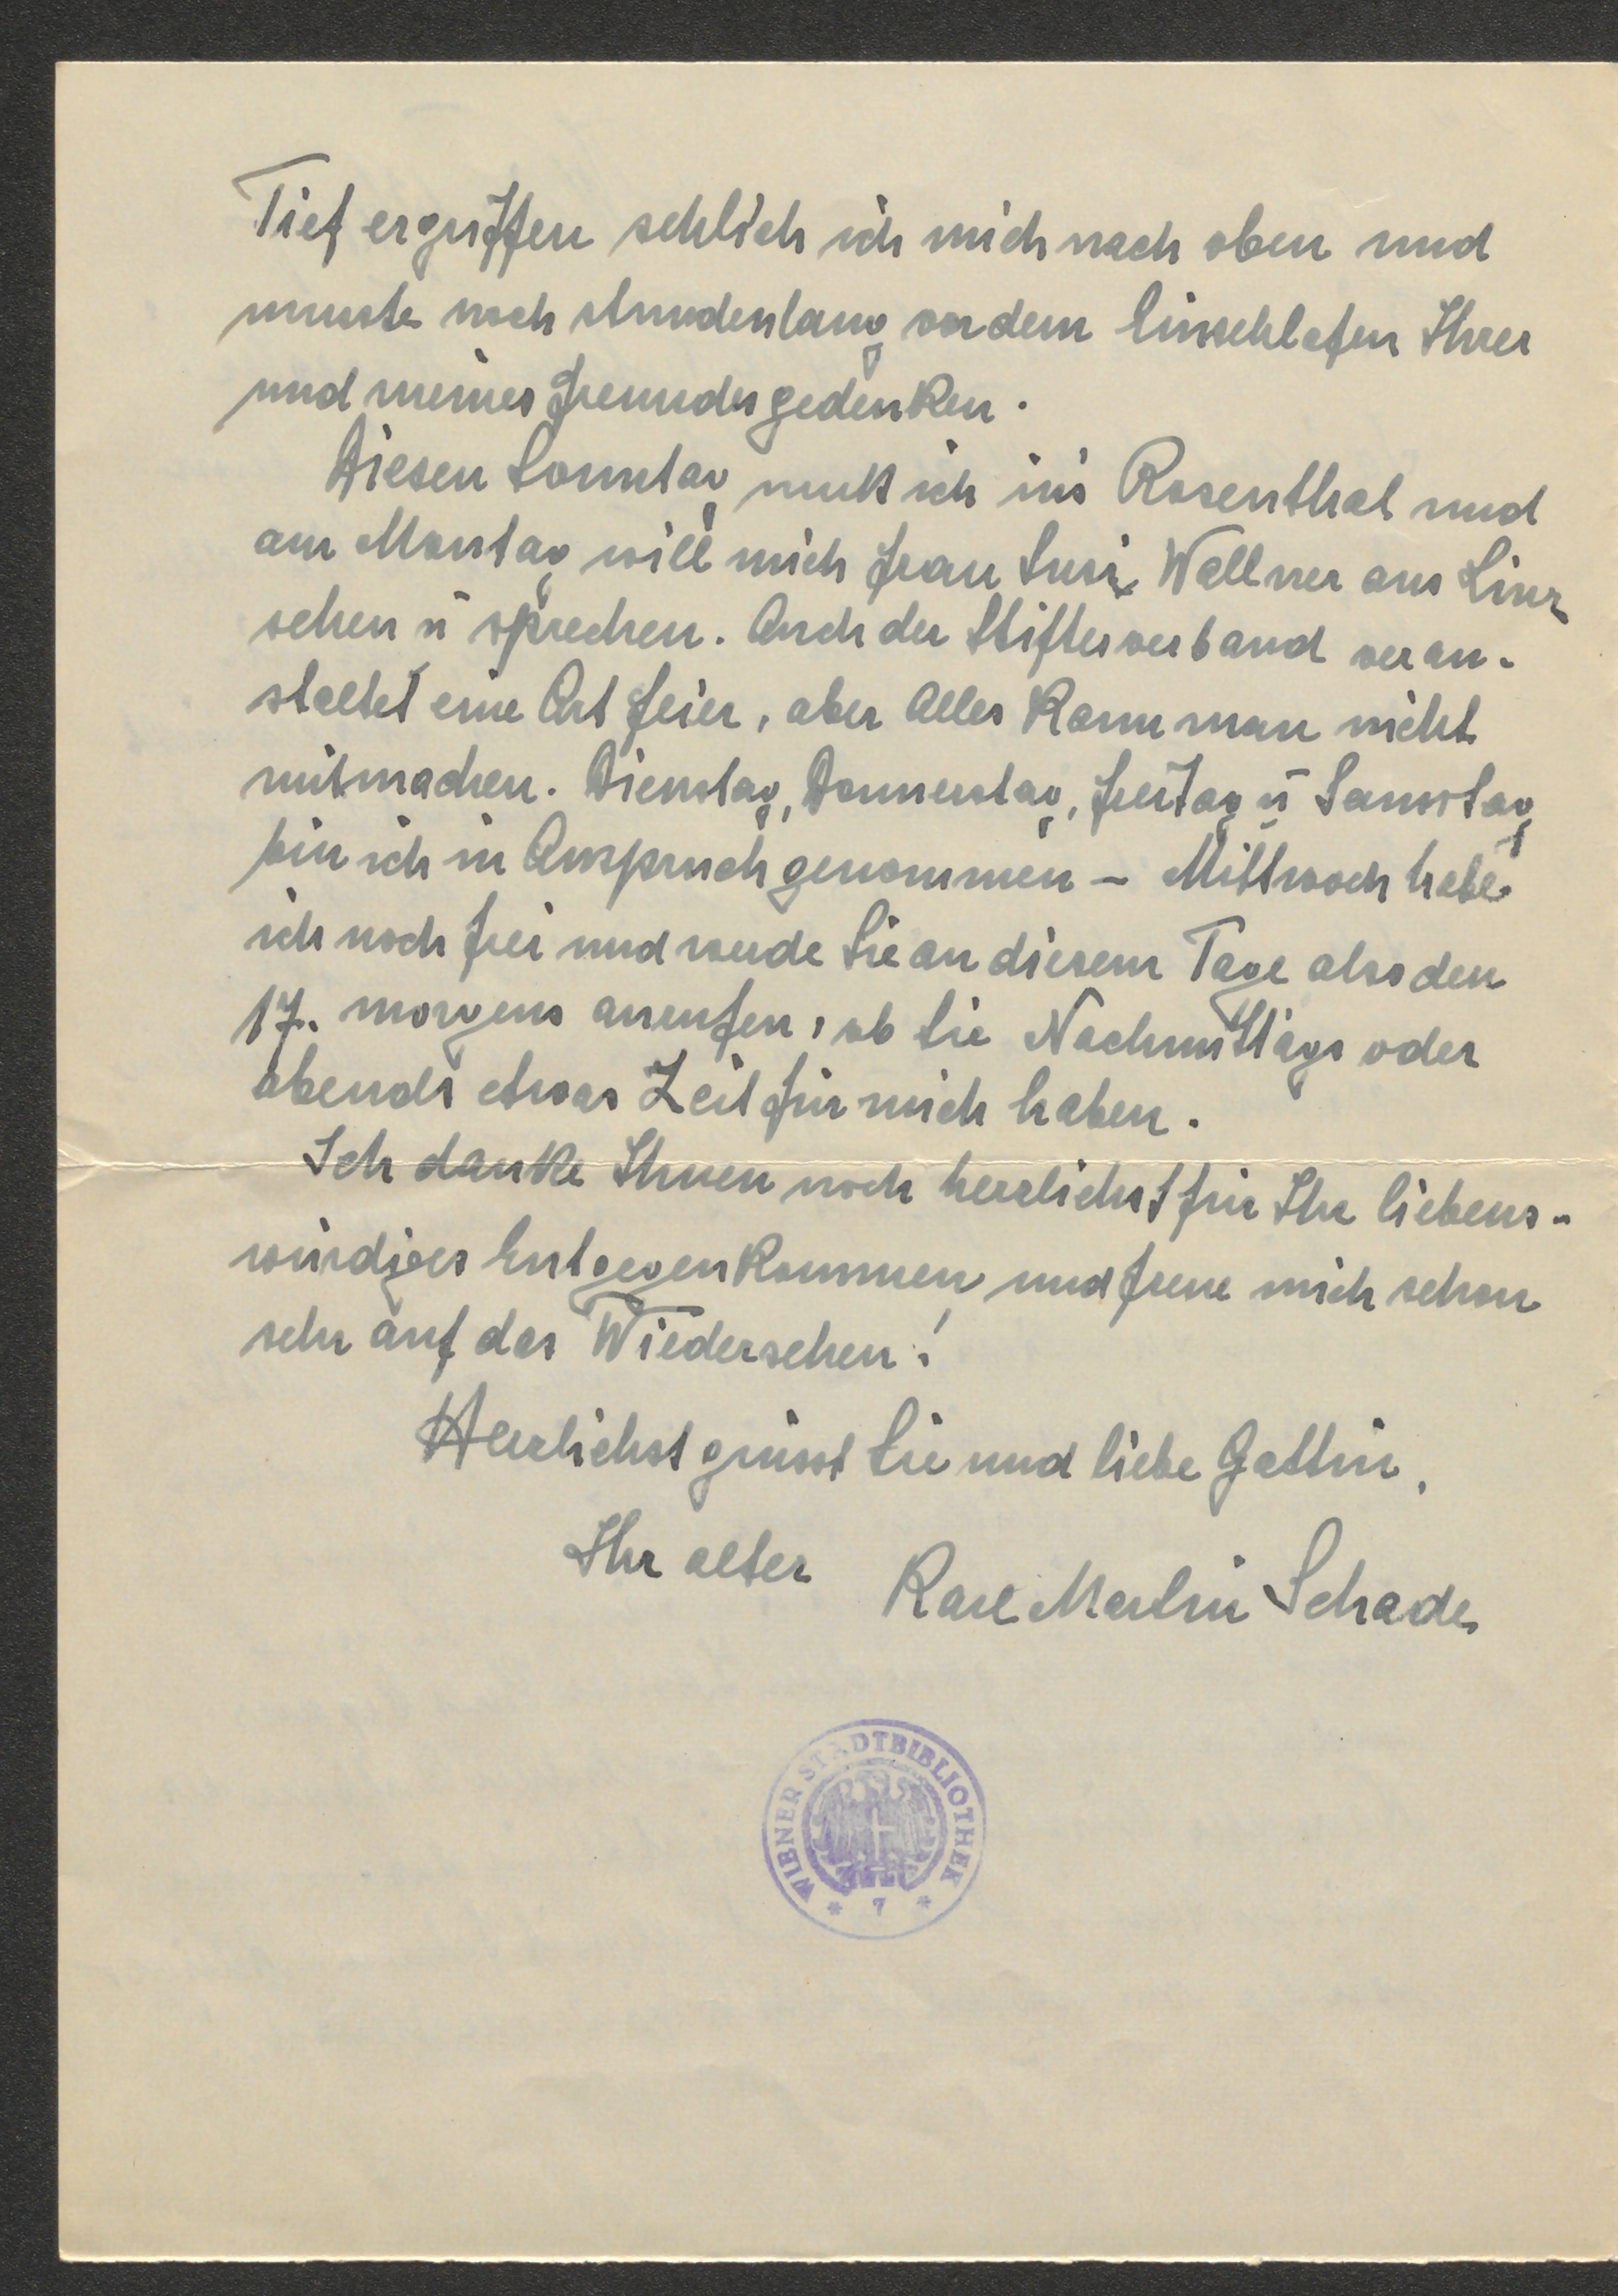 Tief ergriffen schlich ich mich nach oben und
musste noch stundenlang vor dem Einschlafen Ihrer
und meines Freundes gedenken.
Diesen Sonntag muß ich ins Rosenthal und
am Montag will mich Frau Susi Wallner aus Linz
sehen u sprechen. Auch der Stifterverband veran-
staltet eine Art Feier, aber Alles kann man nicht
mitmachen. Dienstag, Donnerstag, Freitag u Samstag
bin ich in Anspruch genommen – Mittwoch habe
ich noch frei und werde Sie an diesem Tage also den
17. morgens anrufen, ob Sie Nachmittags oder
abends etwas Zeit für mich haben.
Ich danke Ihnen noch herzlichst für Ihr liebens-
würdiges Entgegenkommen und freue mich schon
sehr auf das Wiedersehen!
Herzlichst grüsst Sie und liebe Gattin,
Ihr alter Karl Martin Schade
WIENER STADTBIBLIOTHEK
* 7 *